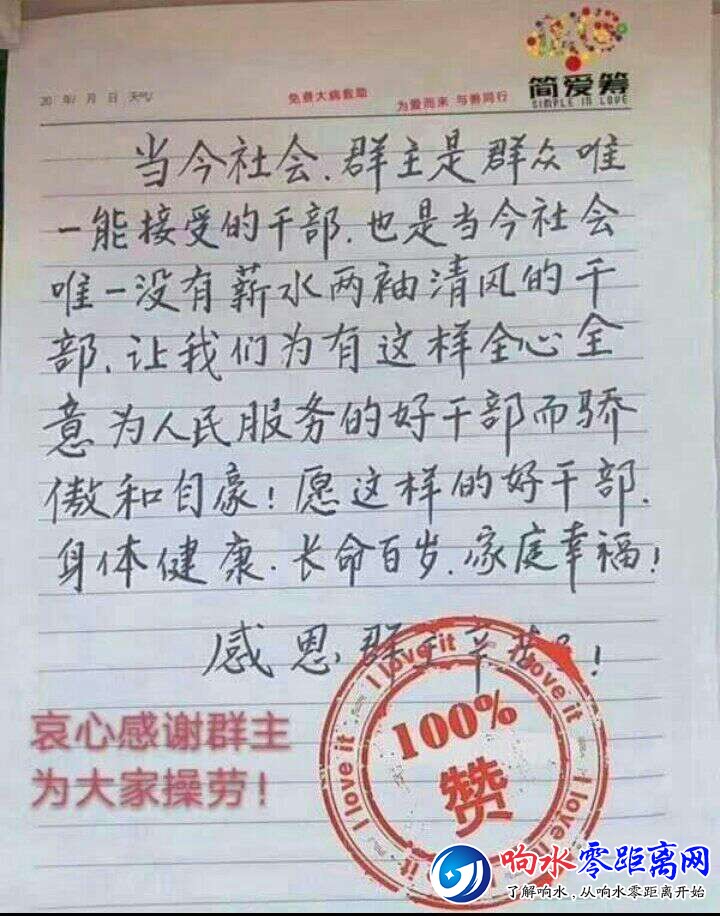 简爱筹
SIMPLE IN LOVE
20 年 月 日 天气
免费大病救助
为爱而来 与善同行
当今社会.群主是群众唯
一能接受的干部.也是当今社会
唯一没有薪水两袖清风的干
部.让我们为有这样全心全
意为人民服务的好干部而骄
傲和自豪!愿这样的好干部.
身体健康.长命百岁.家庭幸福!
感恩.群主辛苦了!
哀心感谢群主
为大家操劳!
I love it
I love it
I love it
I love it
100%
赞
响水零距离网
了解响水,从响水零距离开始